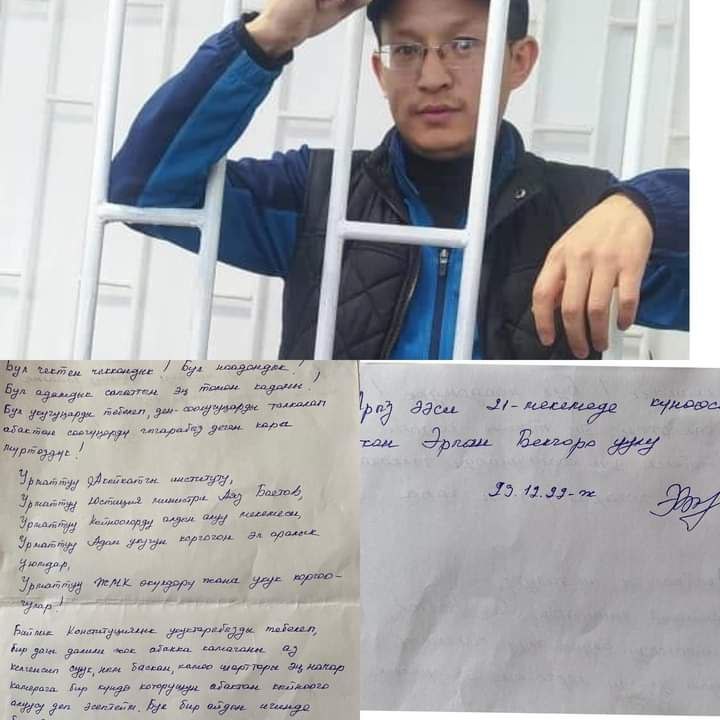 Бул чектен чыккандык! Бул наадандык!
Бул адамдык сапаттын эң төмөн кадамы.
Бул укугуңарды тебелеп, ден-соолугуңарды талкалап
абактан соолуцорду чыгарабыз деген кара
муртоздук!
Урматтуу Акыйкатчы институту,
Урматтуу Юстиция министри Аяз Баетов,
Урматтуу Кыйноолорду алдын алуу мекемеси,
Урматтуу Адам укугун коргогон эл аралык
уюмдар,
Урматтуу ЖМК өкүлдөрү жана укук коргоо-
чулар!
Бийлик Конституциялык укуктарыбызды тебелеп,
бир даяр далили жок абакка камаганы аз
келгенсип суук, ным баскан, камоо шарттары эң начар
камерага бир күндө которушун абактан кыйноого
алуусу деп эсептейм. Бул бир айдын ичинде
ээси 21-мекемеде күнөөсү
Эрлан Бекчоро уулу
23.12.22-ж